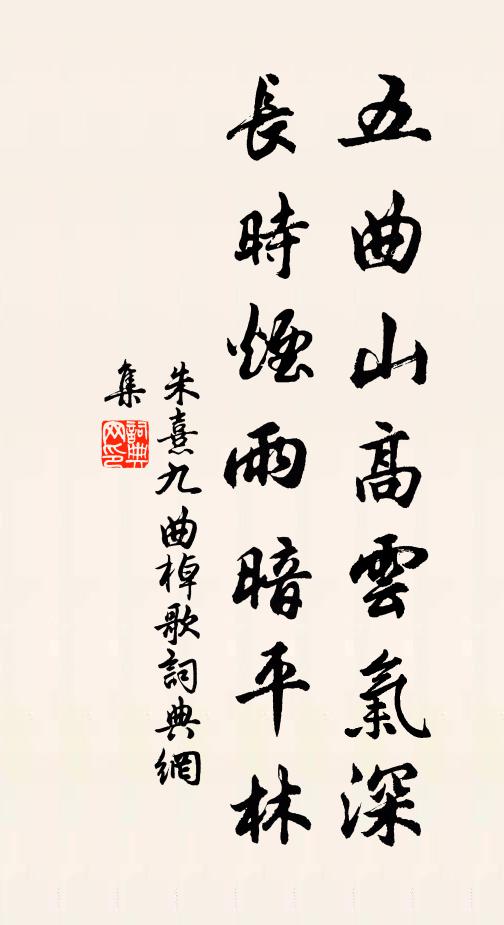 五曲山高雲氣深
長時煙雨暗平林
朱熹九曲棹歌詞典網
集
詞典网印